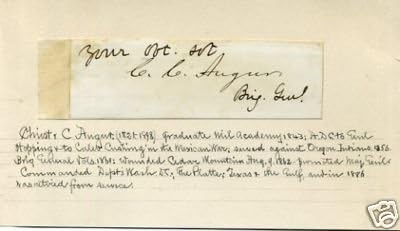 Your obt. svt
C. C. Augur
Brig. Genl.
Christ r C. Augur, (1821-1898) graduate Mil Academy 1843; A.D.C. to Genl
Hopping & to Caleb Cushing in the Mexican War; served against Oregon Indians 1856.
Brig General Vols. 1861: wounded Cedar Mountain Aug. 9. 1862 promoted Maj Genl
Commanded Depts Wash DC., The Platte; Texas & the Gulf, and in 1885
was retired from service.
eBay